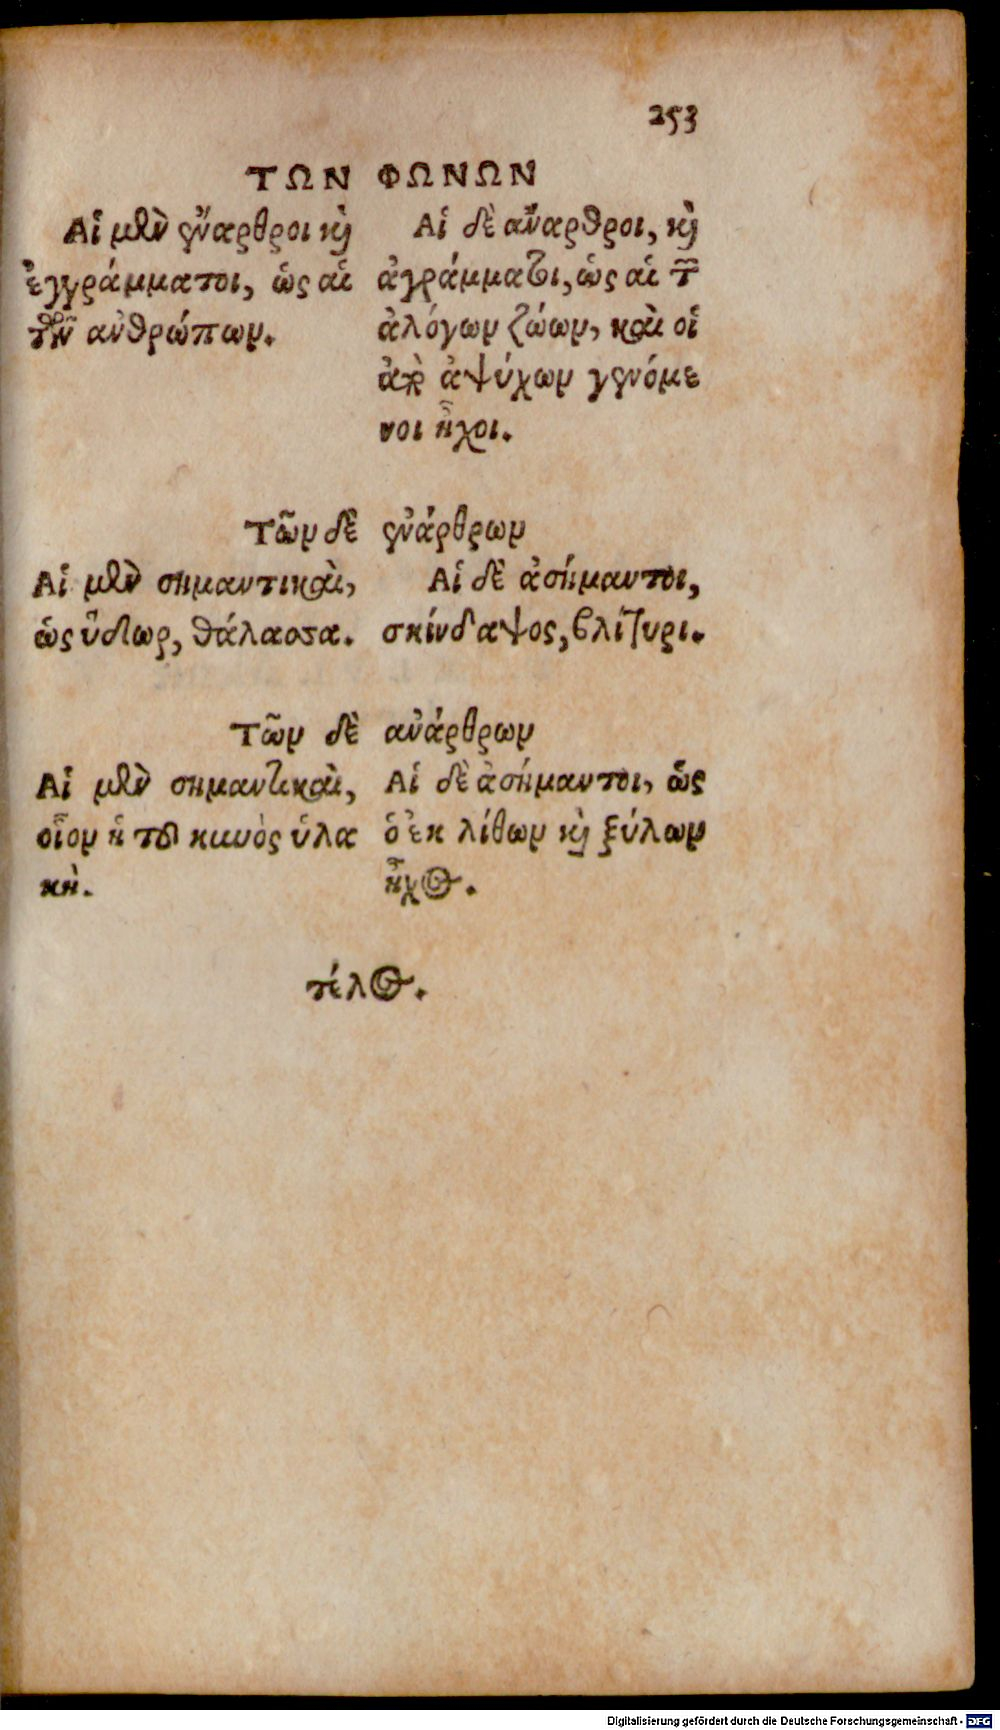 253
ΤΩΝ ΦΩΝΩΝ
Αἱ μὲν ἔναρθροι καὶ
ἐγγράμματοι, ὡς αἱ
τῶν ἀνθρώπων.
Αἱ δὲ ἄναρθροι, καὶ
ἀγράμματοι, ὡς αἱ τῶν
ἀλόγων ζώων, καὶ οἱ
ἀπὸ ἀψύχων γενόμε
νοι ἦχοι.
Τῶν δὲ ἐνάρθρων
Αἱ μὲν σημαντικαὶ,
ὡς ὕδωρ, θάλασσα.
Αἱ δὲ ἀσήμαντοι,
σκίνδαψος, βλίτυρι.
Τῶν δὲ ἀνάρθρων
Αἱ μὲν σημαντικαὶ,
οἷον ἡ τοῦ κυνὸς ὑλα
κὴ.
Αἱ δὲ ἀσήμαντοι, ὡς
ὁ ἐκ λίθων καὶ ξύλων
ἦχος.
τέλος.
Digitalisierung gefördert durch die Deutsche Forschungsgemeinschaft - DFG